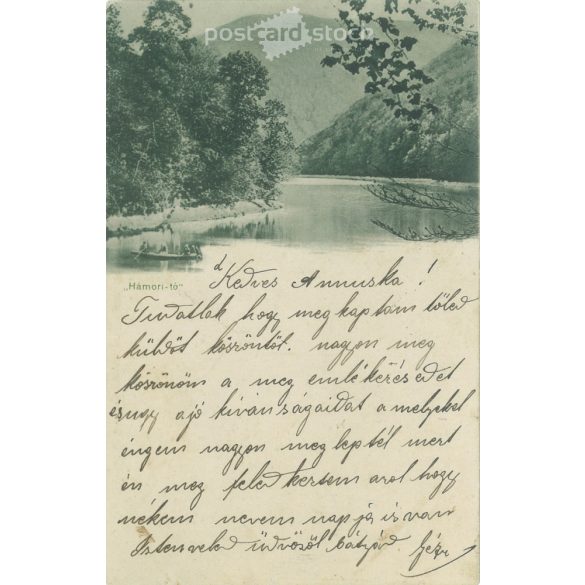 postcard stock
„Hámori-tó"
Kedves Annuska!
Tudatlak hogy meg kaptam tőled
küldöt köszöntőt. nagyon meg
köszönöm a meg emlékezésedet
és ugy a jó kivánságaidat a melyekel
éngem nagyon meg leptél mert
én meg feled keztem arol hogy
nékem nevem nap ja is van
Isten veled üdvözöl bátyád Géza